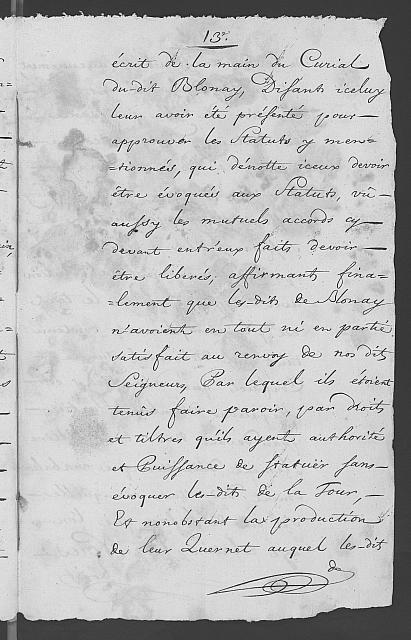 13.e
écrit de la main du Curial
du-dit Blonay, Disants iceluy
leur avoir été présenté pour
approuver les Statuts y men=
=tionnés, qui dénotte iceux devoir
être évoqués aux Statuts, vû
aussy les mutuels accords cy
devant entr'eux faits devoir
être liberés, affirmants fina=
=lement que les-dits de Blonay
n'avoient en tout ni en partie
satisfait au renvoy de nos dits
Seigneurs, Par lequel ils étoient
tenus faire paroir, par droits
et tiltres qu'ils ayent authorité
et Puissance de Statuër sans
évoquer les-dits de la Tour,
Et nonobstant la production
de leur Quernet auquel les-dit
de